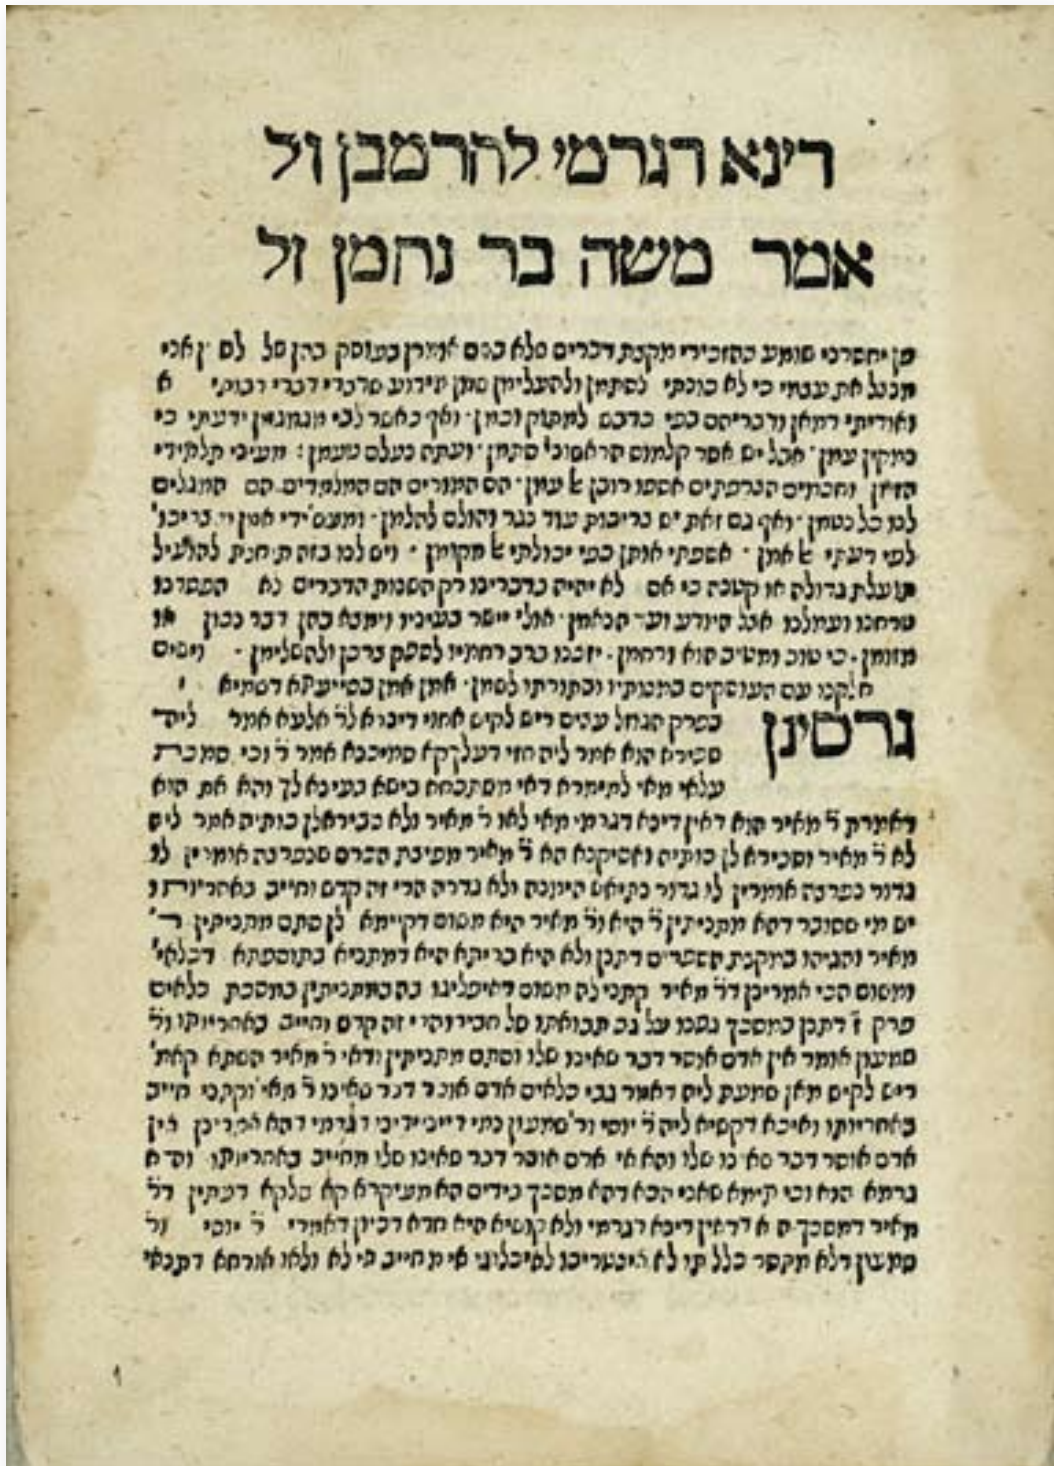 דינא דגרמי להרמבן זל
אמר משה בר נחמן זל
פן יחשדני שומע בהזכירי מקצת דברים שלא בשם אומרן כעוסק בהן של
מגלל את עצמי כי לא כונתי לסתמן ולהעלימן שמן הידוע שדברי דברי רבותי א
ואודיתי דמאן ודבריהם בפי כדבש למתוק וכמן ואף כאשר לבי מגמגמין ידעתי כי
במקין עמן אבל יש אשר קלמוס הראשוני סתמן ועתה נעלם טעמן מעיני תלמידי
הזמן וחכמים הצרפתים אספו רובן אל עמן הם המורים הם המלמדים הם המגלים
לנו כל נטמן ואף גם זאת יש צריכות עוד נגר והולם להלמן
לפי דעתי אמן אספתי אותן כפי יכולתי אל מקומן ויש לנו בזה תוחלת להועיל
תועלת גדולה או קטנה כי אם לא יהיה בדברינו רק השנות הדברים לא הפסדנו
טרחנו ועמלנו אבל היודע ועד הנאמן אולי יישר בעיניו וימצא בהן דבר נכון או
מזומן כי טוב ומטיב הוא ורחמן יזכנו ברב רחמיו לספק צרכן ולהשלימן וישים
חלקנו עם העוסקים במצותיו ובתורתו לשמן אמן אמן בסייעתא דשמיא
גרסינן
בפרק הגוזל עצים ריש לקיש אחוי דינרא לר אלעא אמר ליה
שפירא הוא אמר ליה חזי דעלך קא סמיכנא אמר ר וכי סמכת
עלאי מאי למימרא דאי משתכחא בישא בעינא לך והא את הוא
דאמרת ר מאיר הוא דאין דינא דגרמי מאי לאו ר מאיר ולא סבירא לן כותיה אמר ליה
לא ר מאיר וסבירא לן כותיה ואסיקנא הא ר מאיר מחיצת הכרם שנפרצה אומרין לו
גדור נפרצה אומרין לו גדור נתיאש הימנה ולא גדרה הרי זה קדש וחייב באחריותו
יש מי שסובר דהא מתניתין ר היא ור מאיר היא משום דקיימא לן סתם מתניתין ר
מאיר והגיהו במקצת הספרים דתנן ולא היא ברייתא היא דמתניא בתוספתא דכלאי
ומשום הכי אמרינן דר מאיר קתני לה משום דאיפליגו בה במתניתין במסכת כלאים
פרק ז דתנן המסכך גפנו על גב תבואתו של חבירו הרי זה קדש וחייב באחריותו ור
שמעון אומר אין אדם אוסר דבר שאינו שלו וסתם מתניתין ודאי ר מאיר השתא קאמ
ריש לקיש מאן שמעת ליה דאמר גבי כלאים אדם אוסר דבר שאינו ר מאי וקתני חייב
באחריותו ואיכא דקשיא ליה ר יוסי ור שמעון נמי דייני דיני דגרמי דהא אמרינן אין
אדם אוסר דבר שאינו שלו והא אי אדם אוסר דבר שאינו שלו מחייב באחריותו והא
גרמא הוא וכי תימא שאני הכא דהא מסכך בידים הא מעיקרא קא סלקא דעתין דר
מאיר דמסכך הא דדאין דינא דגרמי ולא קושיא היא חדא דכיון דאמרי ר יוסי ור
שמעון דלא מקסר כלל תו לא איצטריכו לאיפלוגי אי מחייב אי לא ולאו אורחא דתנאי